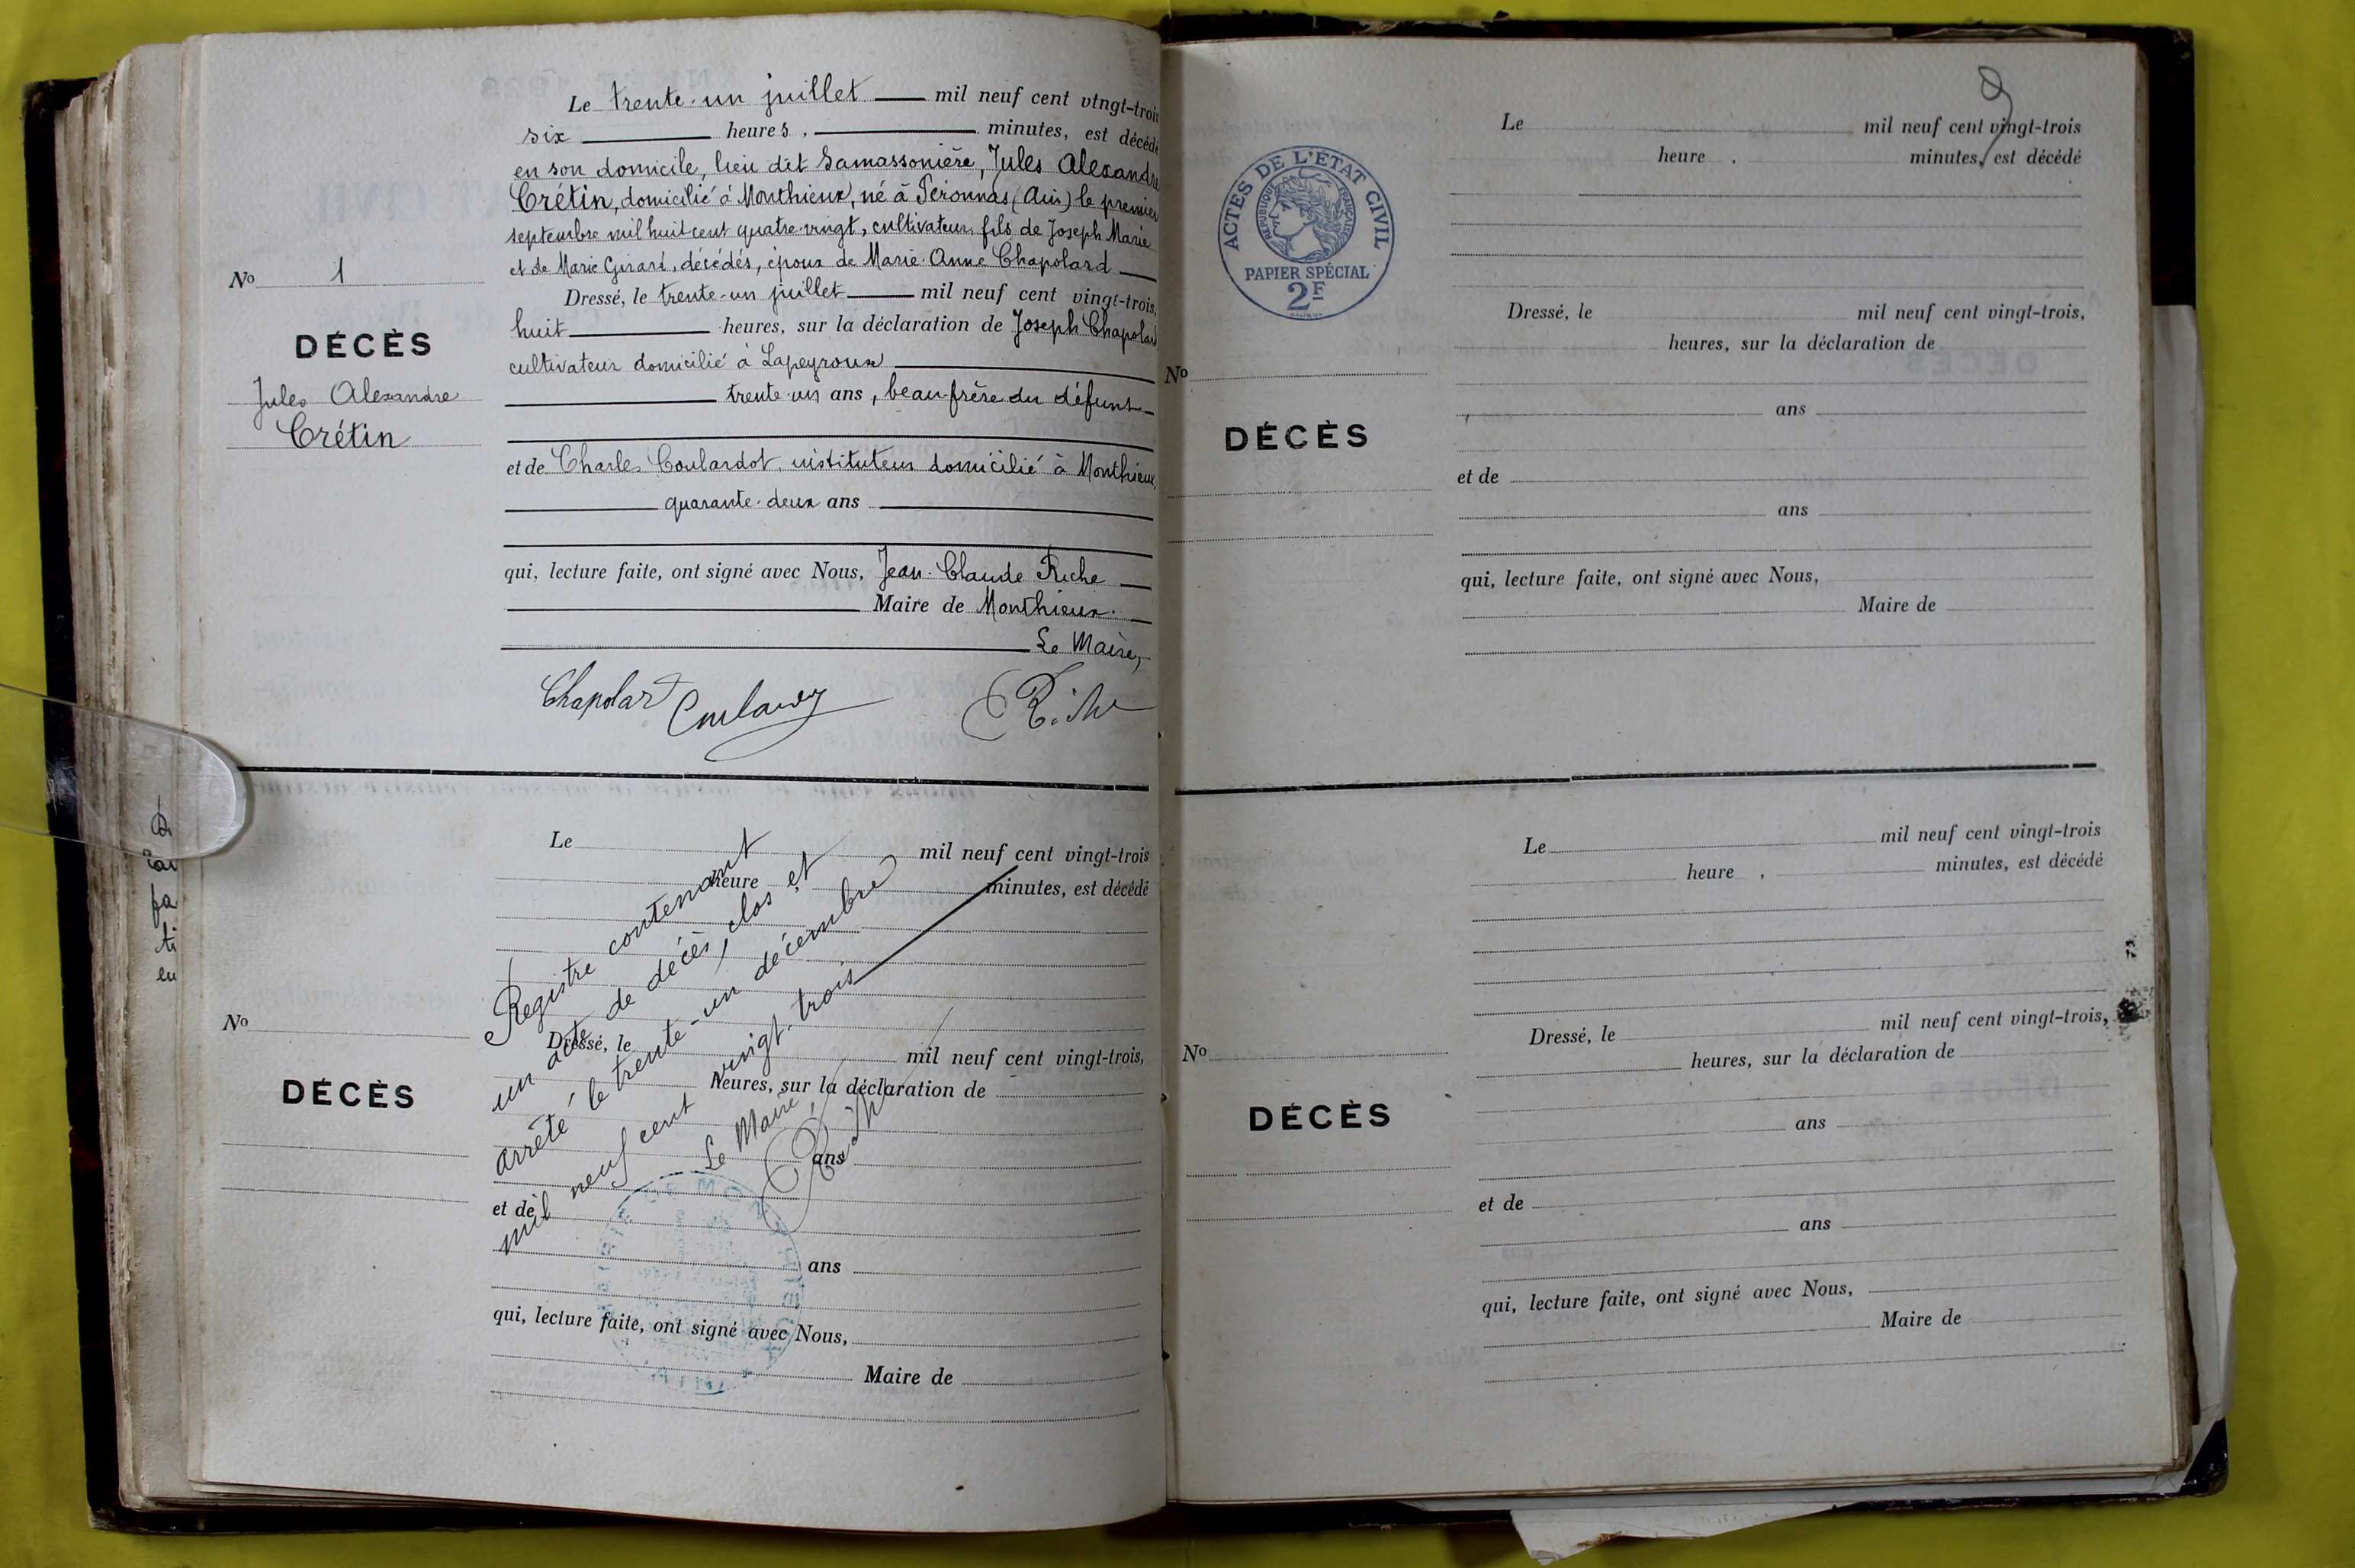 Le trente-un juillet mil neuf cent vingt-trois
six heures, minutes, est décédé
en son domicile, lieu dit Samassonière, Jules Alexandre
Crétin, domicilié à Monthieux, né à Péronnas (Ain) le premier
septembre mil huit cent quatre-vingt, cultivateur, fils de Joseph Marie
et de Marie Girard, décédés, époux de Marie-Anne Chapolard
Dressé, le trente-un juillet mil neuf cent vingt-trois,
huit heures, sur la déclaration de Joseph Chapolard
cultivateur domicilié à Lapeyroux
trente-un ans, beau-frère du défunt
et de Charles Coulardot, instituteur domicilié à Monthieux,
quarante-deux ans
qui, lecture faite, ont signé avec Nous, Jean-Claude Riche
Maire de Monthieux.
Le Maire,
Chapolard
Riche
No 1
DÉCÈS
Jules Alexandre
Crétin
Le mil neuf cent vingt-trois
heure minutes, est décédé
Dressé, le mil neuf cent vingt-trois,
heures, sur la déclaration de
ans
et de
ans
qui, lecture faite, ont signé avec Nous,
Maire de
No
DÉCÈS
Registre contenant
un acte de décès, clos et
arrêté le trente-un décembre
mil neuf cent vingt-trois
Le Maire,
Riche
ACTES DE L'ÉTAT CIVIL
RÉPUBLIQUE FRANÇAISE
PAPIER SPÉCIAL
2F
Le mil neuf cent vingt-trois
heure , minutes, est décédé
Dressé, le mil neuf cent vingt-trois,
heures, sur la déclaration de
, ans
et de
ans
qui, lecture faite, ont signé avec Nous,
Maire de
No
DÉCÈS
Le mil neuf cent vingt-trois
heure , minutes, est décédé
Dressé, le mil neuf cent vingt-trois,
heures, sur la déclaration de
ans
et de
ans
qui, lecture faite, ont signé avec Nous,
Maire de
No
DÉCÈS